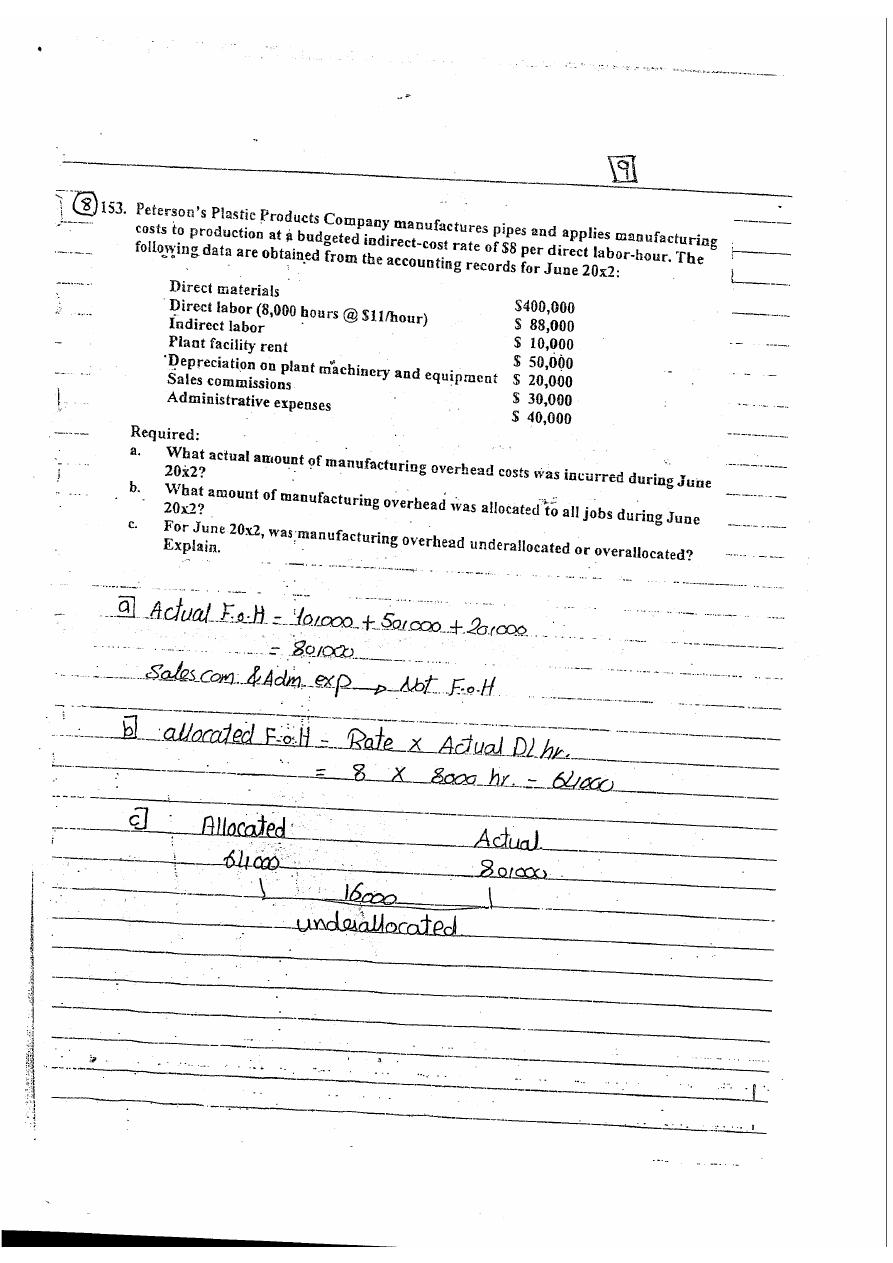 9
8 153. Peterson's Plastic Products Company manufactures pipes and applies manufacturing
costs to production at a budgeted indirect-cost rate of $8 per direct labor-hour. The
following data are obtained from the accounting records for June 20x2:
Direct materials $400,000
Direct labor (8,000 hours @ $11/hour) $ 88,000
Indirect labor $ 10,000
Plant facility rent $ 50,000
Depreciation on plant machinery and equipment $ 20,000
Sales commissions $ 30,000
Administrative expenses $ 40,000
Required:
a. What actual amount of manufacturing overhead costs was incurred during June
20x2?
b. What amount of manufacturing overhead was allocated to all jobs during June
20x2?
c. For June 20x2, was manufacturing overhead underallocated or overallocated?
Explain.
a] Actual F.o.H = 10,000 + 50,000 + 20,000
= 80,000
Sales com. & Adm. exp → Not F.o.H
b] allocated F.o.H = Rate x Actual DL hr.
= 8 x 8000 hr. = 64000
c] Allocated Actual
64000 80,000
16000
underallocated